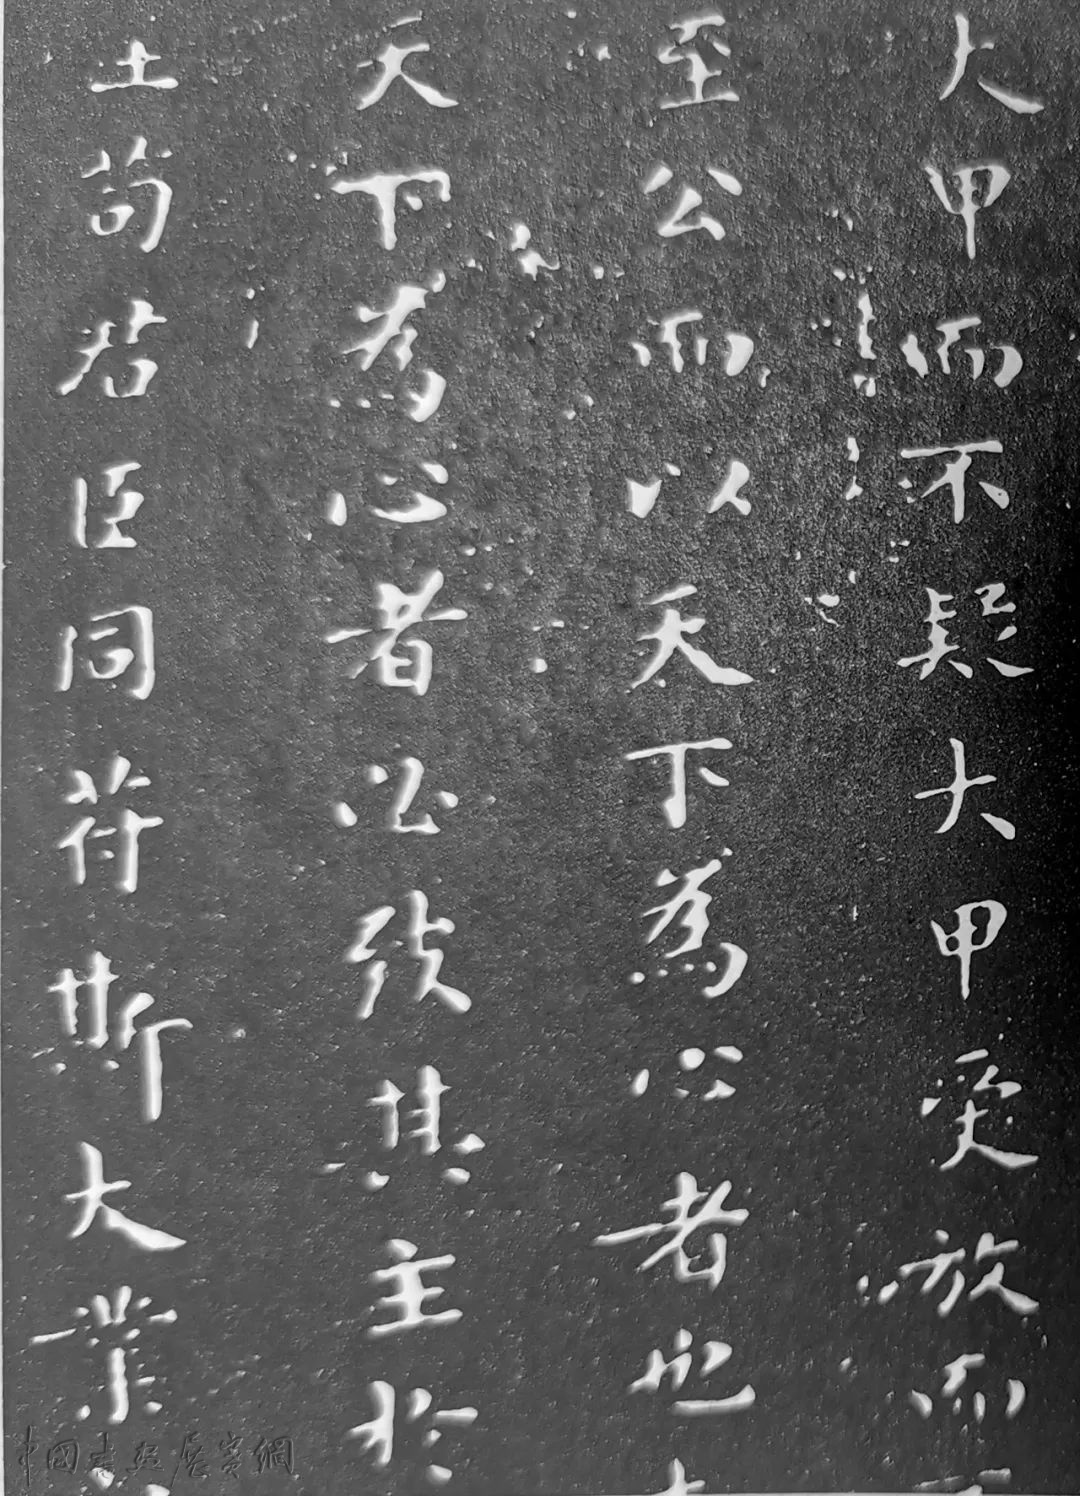 大甲而不疑大甲受放而
至公而以天下為心者也
天下為心者必致其主於
王苟君臣同符斯大業
中國書法展賽網